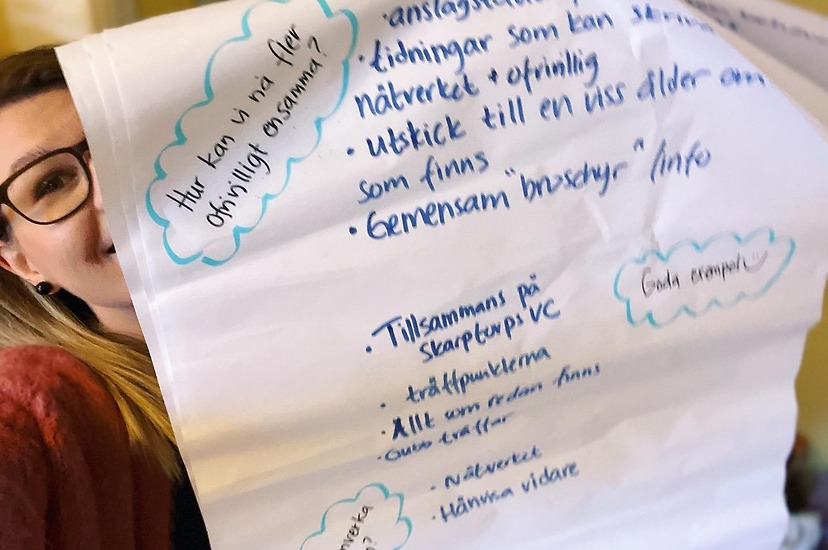 Hur kan vi nå fler
ofrivilligt ensamma?
• tidningar som kan
nätverket + ofrivillig
• utskick till en viss ålder om
som finns
• Gemensam "broschyr" /info
Goda exempel
• Tillsammans på
Skarptorps VC
• träffpunkterna
• Allt som redan finns
• Gubbträffar
• Nätverket
• Hänvisa vidare